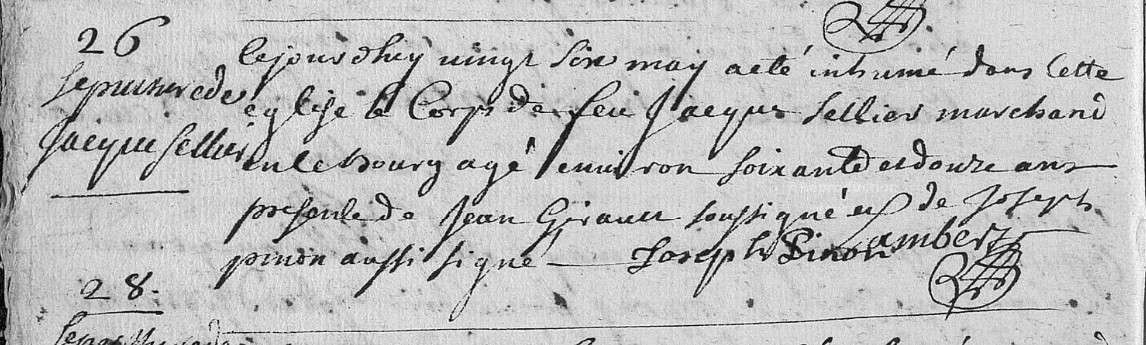 26
sepulture de
Jacque Sellier
Cejourdhuy vingt six may a eté inhumé dans Cette
eglise le Corps de feu Jacques Sellier marchand
en le bourg agé environ soixante et douze ans
presence de Jean Girault soussigné et de Joseph
pinon aussi signé Joseph Pinon Lambert
28
sepulture de